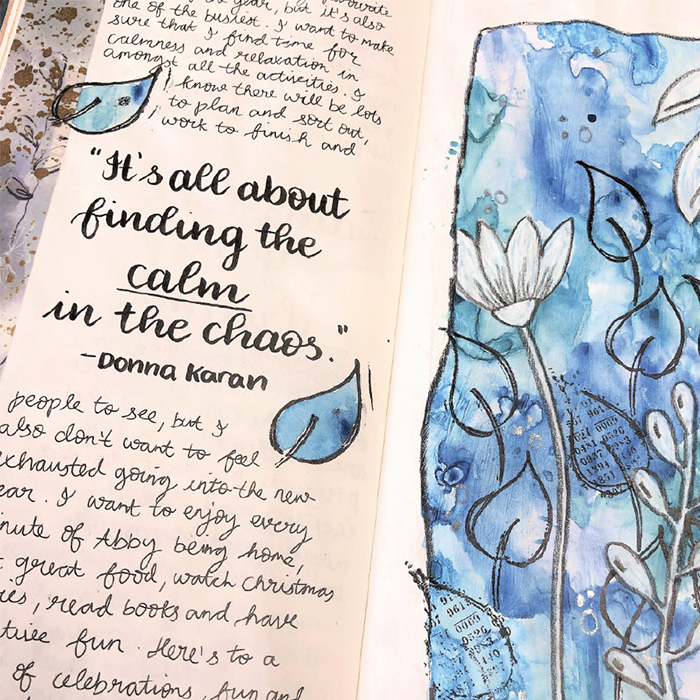 favourite
year, but it's also
one of the busiest. I want to make
sure that I find time for
calmness and relaxation in
amongst all the activities. I
know there will be lots
to plan and sort out,
work to finish and
"It's all about
finding the
calm
in the chaos."
-Donna Karan
people to see, but I
also don't want to feel
exhausted going into the new
ear. I want to enjoy every
nute of Abby being home,
t great food, watch Christmas
ies, read books and have
tive fun. Here's to a
of celebrations, fun and